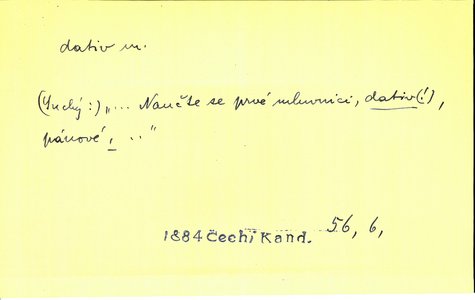 dativ m.
(Suchý:) „... Naučte se prvé mluvnici, dativ(!),
pánové, .. "
1884 Čech: Kand. 56, 6,